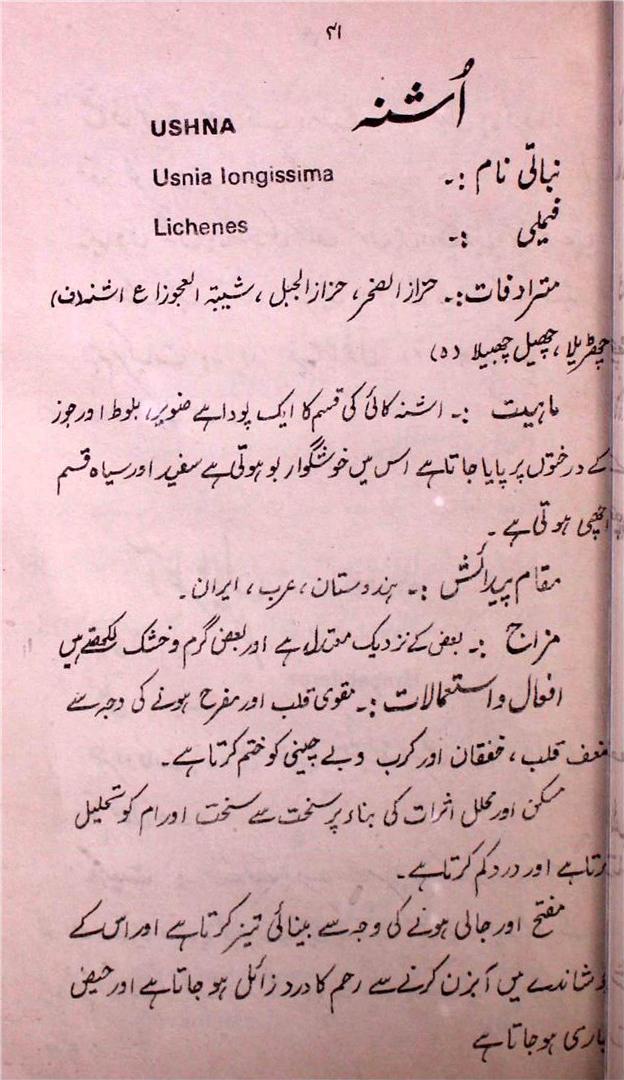 ۴۱
اُشنہ
USHNA
نباتی نام :۔ Usnia longissima
فیملی :۔ Lichenes
مترادفات:۔ حزاز الصخر، حزاز الجبل، شیبۃ العجوز (ع) اشنہ (ف)
چھڑیلا، چھیل چھبیلا (ہ)
ماہیت :۔ اشنہ کائی کی قسم کا ایک پودا ہے صنوبر، بلوط اور جوز
کے درختوں پر پایا جاتا ہے اس میں خوشگوار بو ہوتی ہے سفید اور سیاہ قسم
اچھی ہوتی ہے۔
مقام پیدائش :۔ ہندوستان، عرب، ایران۔
مزاج :۔ بعض کے نزدیک معتدل ہے اور بعض گرم و خشک لکھتے ہیں
افعال و استعمالات :۔ مقوی قلب اور مفرح ہونے کی وجہ سے
ضعف قلب، خفقان اور کرب و بے چینی کو ختم کرتا ہے۔
مسکن اور محلل اثرات کی بناء پر سخت سے سخت اورام کو تحلیل
کرتا ہے اور درد کم کرتا ہے۔
مفتح اور جالی ہونے کی وجہ سے بینائی تیز کرتا ہے اور اس کے
جوشاندے میں آبزن کرنے سے رحم کا درد زائل ہو جاتا ہے اور حیض
جاری ہو جاتا ہے